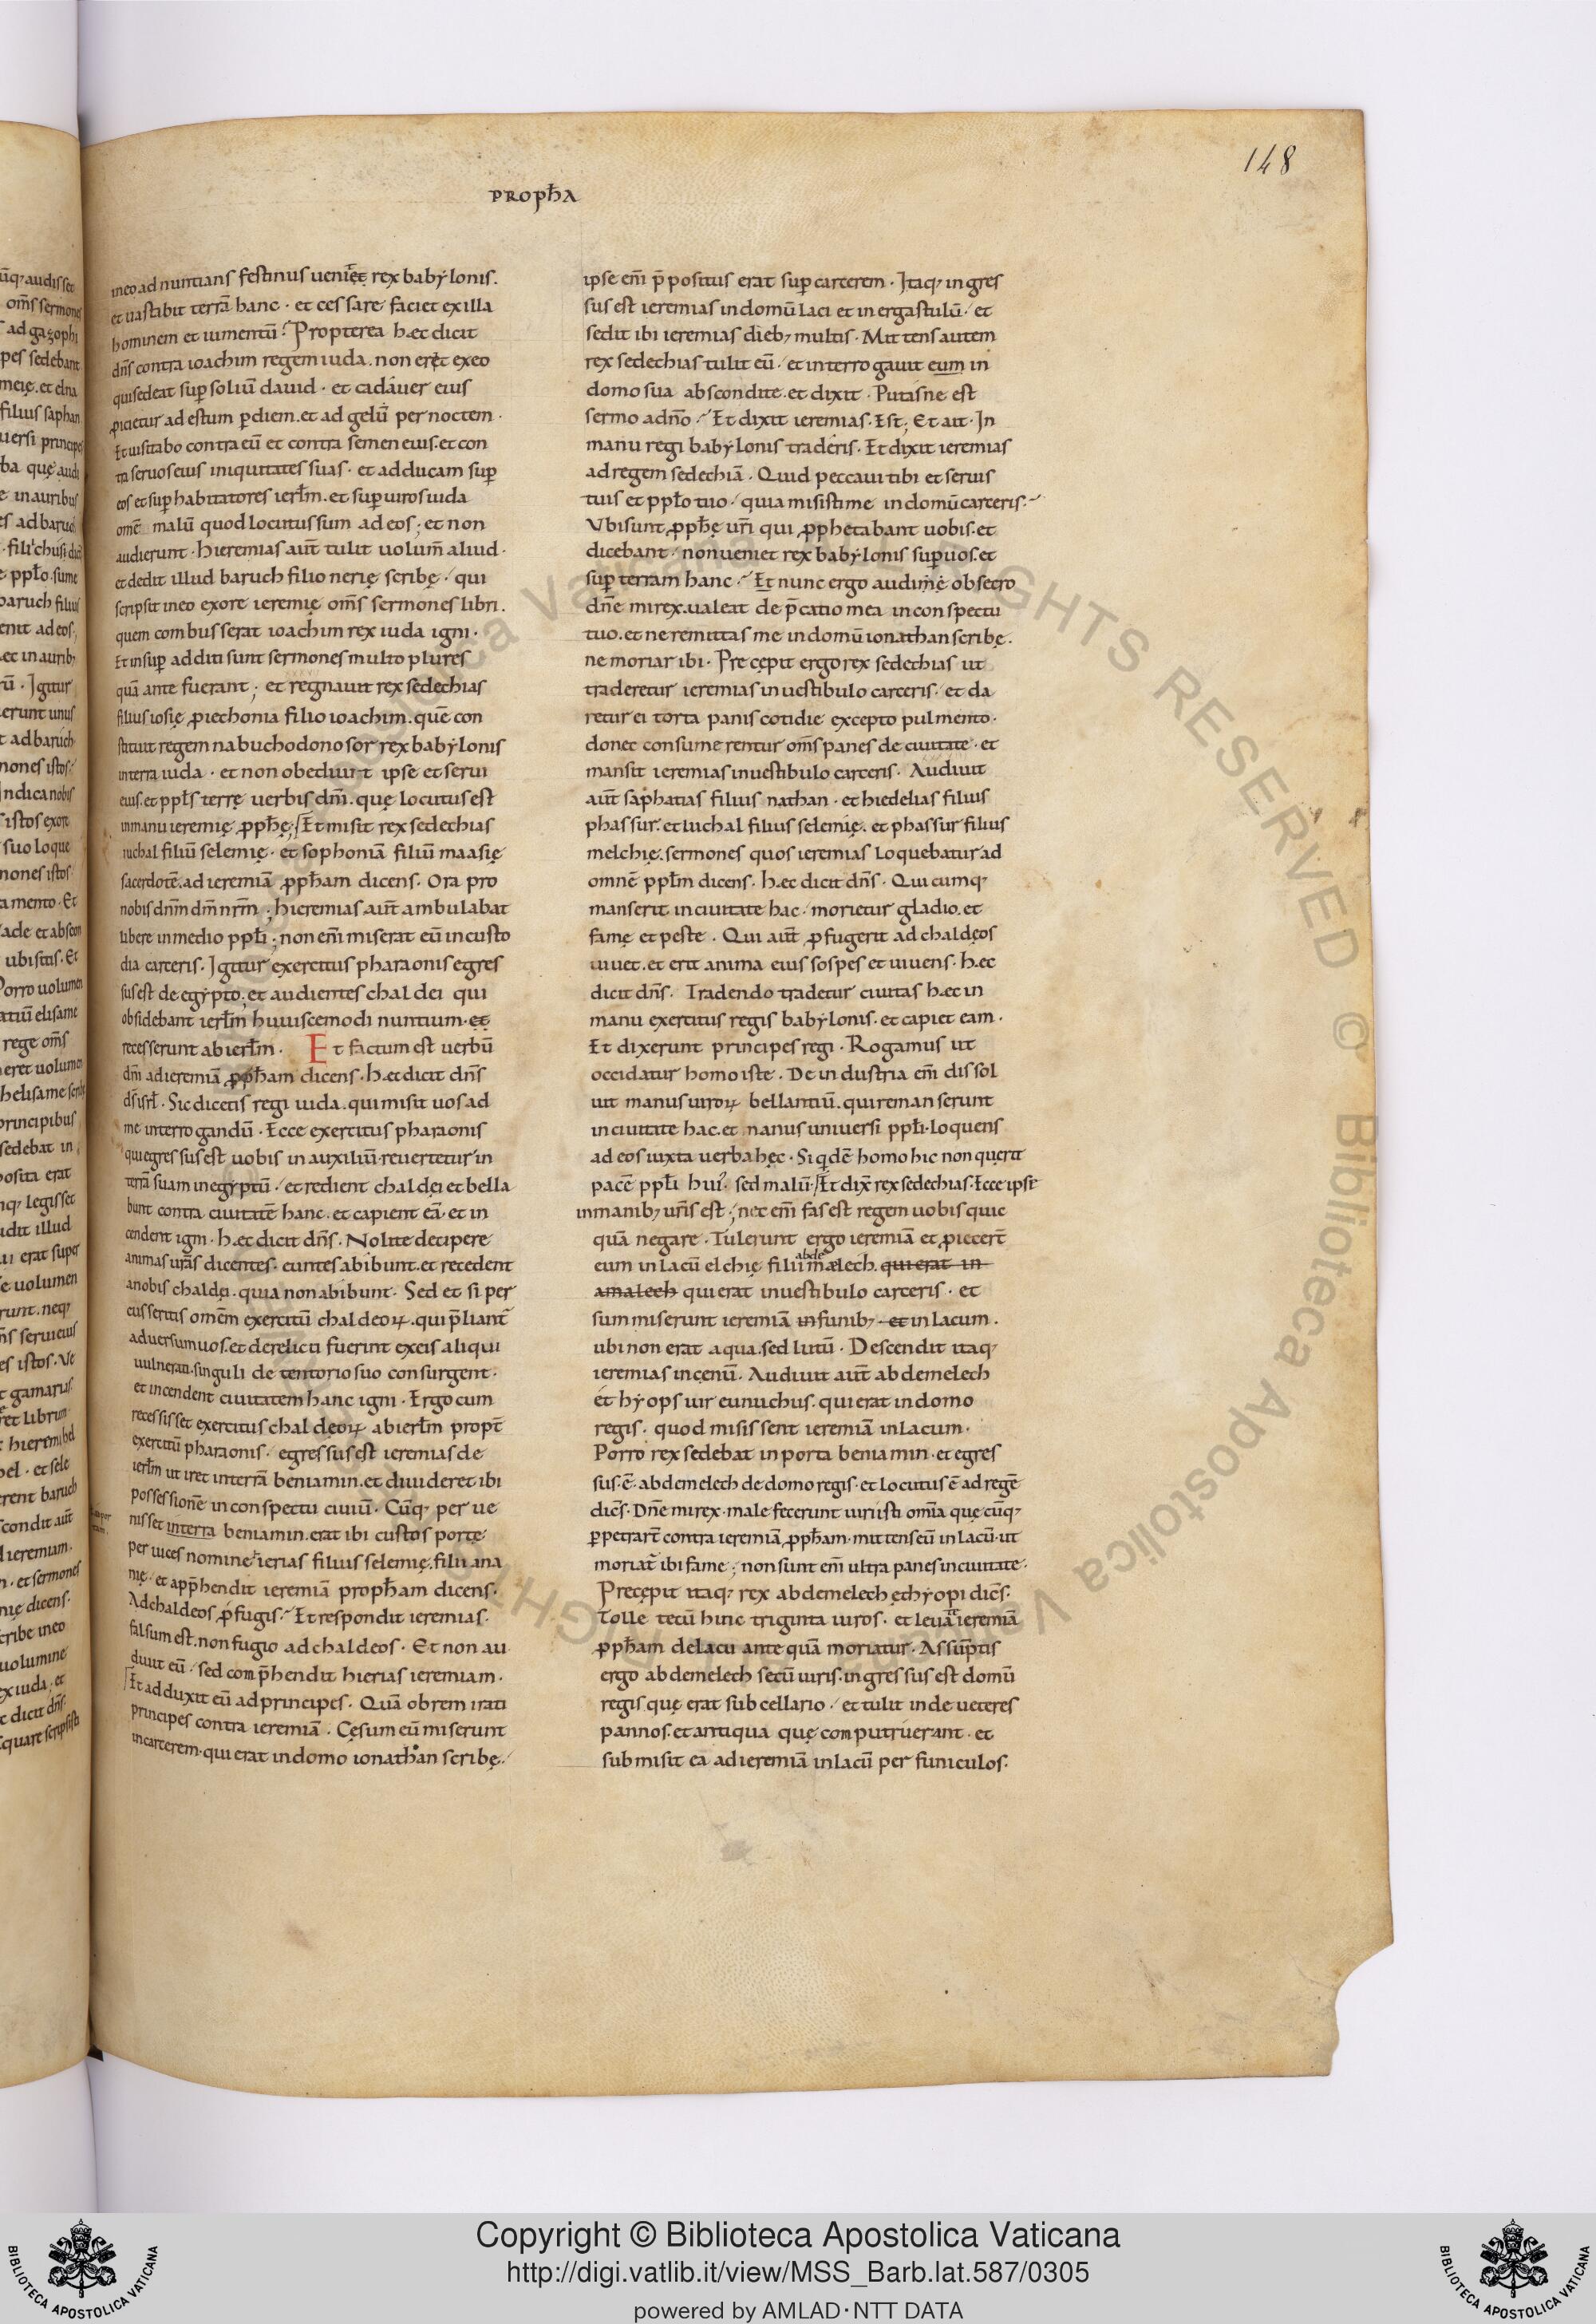 148
ꝓpħa
ineo ad nuntians festinus ueniet rex babẏlonis.
et uastabit terrā hanc · et ces sare faciet ex illa
hominem et iumentū · Propterea hæc dicit
dn̄s contra ioachim regem iuda . non erit exeo
qui sedeat suꝑ soliū dauid · et cadáuer eius
ꝓicietur ad estum ꝑ diem . et ad gelū per noctem ·
Et uisitabo contra eū et contra semen eius . et con
tra seruos eius iniquitates suas · et adducam suꝑ
eos et suꝑ habitatores ierłm . et suꝑ uiros iuda
omē malū quod locutus sum ad eos ; et non
audierunt · hieremias aūt tulit uolum̄ aliud ·
et dedit illud baruch filio nerię scribę · qui
scripsit in eo ex ore ieremię om̄s sermones libri .
quem combusserat ioachim rex iuda igni ·
Et insuꝑ additi sunt sermones multo plures
quā ante fuerant ; et regnauit rex sedechias
filius iosię ꝓ iechonia filio ioachim . quē con
stituit regem nabuchodonosor rex babẏlonis
in terra iuda · et non obediuit ipse et serui
eius . et ppłs terrę uerbis dm̄i . quę locutus est
in manu ieremię ꝓpħę ; Et misit rex sedechias
iuchal filiū selemię · et sophoniā filiū maasię
sacerdotē . ad ieremiā ꝓpħam dicens . Ora pro
nobis dn̄m dm̄ nr̄m ; hieremias aūt ambulabat
libere in medio ppłi ; non em̄i miserat eū in custo
dia carceris . Igitur exercitus pharaonis egres
sus est de egẏpto ; et audientes chaldei qui
obsidebant ierłm huiuscemodi nuntium · et
recesserunt ab ierłm . Et factum est uerbū
dm̄i ad ieremiā ꝓpħam dicens · hæc dicit dn̄s
ds̄ isrł . Sic dicetis regi iuda . qui misit uos ad
me interrogandū · Ecce exercitus pharaonis
qui egressus est uobis in auxiliū · reuertetur in
terrā suam in egẏptū · et redient chaldęi et bella
bunt contra ciuitatē hanc . et capient eā · et in
cendent igni · hæc dicit dn̄s . Nolite decipere
animas ur̄as dicentes . euntes abibunt . et recedent
a nobis chaldęi . quia non abibunt · Sed et si per
cusseritis omēm exercitū chaldeoꝝ . qui p̄liant̄
aduersum uos . et derelicti fuerint ex eis aliqui
uulnerati . singuli de tentorio suo consurgent ·
et incendent ciuitatem hanc igni · Ergo cum
recessisset exercitus chaldeoꝝ ab ierłm propt̄
exercitū pharaonis · egressus est ieremias de
ierłm ut iret in terrā beniamin . et diuideret ibi
possessionē in conspectu ciuiū . Cūq; per ue
nisset in terra beniamin . erat ibi custos portę
per uices nomine ierias filius selemię . filii ana
nię · et app̄hendit ieremiā propħam dicens .
Ad chaldeos ꝓfugis · Et respondit ieremias ·
falsum est . non fugio ad chaldeos · Et non au
diuit eū · sed comp̄hendit hierias ieremiam ·
Et adduxit eū ad principes . Quā obrem irati
principes contra ieremiā · Cęsum eū miserunt
in carcerem · qui erat in domo ionathan scribę ·
ipse em̄i p̄positus erat suꝑ carcerem · Itaq; ingres
sus est ieremias in domū laci et in ergastulū · et
sedit ibi ieremias dieb; multis · Mittens autem
rex sedechias tulit eū · et interrogauit eum in
domo sua abscondite . et dixit · Putasne est
sermo a dn̄o · Et dixit ieremias . Est ; Et ait · In
manu regi babẏlonis traderis . Et dixit ieremias
ad regem sedechiā . Quid peccaui tibi et seruis
tuis et ppło tuo · quia misisti me in domū carceris ·
Ubi sunt ꝓpħę ur̄i qui ꝓphetabant uobis . et
dicebant · non ueniet rex babẏlonis suꝑ uos . et
suꝑ terram hanc · Et nunc ergo audi me obsecro
dn̄e mi rex . ualeat dep̄catio mea in conspectu
tuo . et ne remittas me in domū ionathan scribę .
ne moriar ibi · Precępit ergo rex sedechias ut
traderetur ieremias in uestibulo carceris · et da
retur ei torta panis cotidie excepto pulmento ·
donec consumerentur om̄s panes de ciuitate · et
mansit ieremias in uestibulo carceris . Audiuit
aūt saphatias filius nathan · et hiedelias filius
phassur . et luchal filius selemię . et phassur filius
melchię . sermones quos ieremias loquebatur ad
omnē ppłm dicens . hæc dicit dn̄s . Qui cumq;
manserit in ciuitate hac · morietur gladio . et
famę et peste . Qui aūt ꝓfugerit ad chaldęos
uiuet . et erit anima eius sospes et uiuens . hæc
dicit dn̄s . Tradendo tradetur ciuitas hæc in
manu exercitus regis babẏlonis . et capiet eam .
Et dixerunt principes regi . Rogamus ut
occidatur homo iste . De industria em̄i dissol
uit manus uiroꝝ bellantiū . qui remanserunt
in ciuitate hac . et manus uniuersi ppłi · loquens
ad eos iuxta uerba hęc . Siqdē homo hic non querit
pacē ppłi hui᷒ · sed malū · Et dix̄ rex sedechias . Ecce ipse
in manib; ur̄is est ; nec em̄i fas est regem uobis quic
quā negare . Tulerunt ergo ieremiā et ꝓiecert̄
eum in lacū elchię filii abdemælech . qui erat in
amalech qui erat in uestibulo carceris · et
summiserunt ieremiā in funib; et in lacum .
ubi non erat aqua . sed lutū · Descendit itaq;
ieremias in cęnū . Audiuit aūt abdemelech
ethẏops uir eunuchus . qui erat in domo
regis . quod misissent ieremiā in lacum .
Porro rex sedebat in porta beniamin · et egres
sus . ē . abdemelech de domo regis . et locutus ē ad regē
dic̄s . Dn̄e mi rex . male fecerunt uiri isti om̄ia quę cūq;
ꝑpetrart̄ contra ieremiā ꝓpħam . mittens eū in lacū · ut
moriat̄ ibi fame ; non sunt em̄i ultra panes in ciuitate ·
Precępit itaq; rex abdemelech ęthẏopi dic̄s .
Tolle tecū hinc triginta uiros . et leua ieremiā
ꝓpħam de lacu ante quā moriatur . Assūptis
ergo abdemelech secū uiris . ingressus est domū
regis quę erat sub cellario · et tulit inde ueteres
pannos . et antiqua quę computruerant . et
submisit ea ad ieremiā in lacū per funiculos .
Copyright © Biblioteca Apostolica Vaticana
http://digi.vatlib.it/view/MSS_Barb.lat.587/0305
powered by AMLAD · NTT DATA
BIBLIOTECA APOSTOLICA VATICANA
BIBLIOTECA APOSTOLICA VATICANA